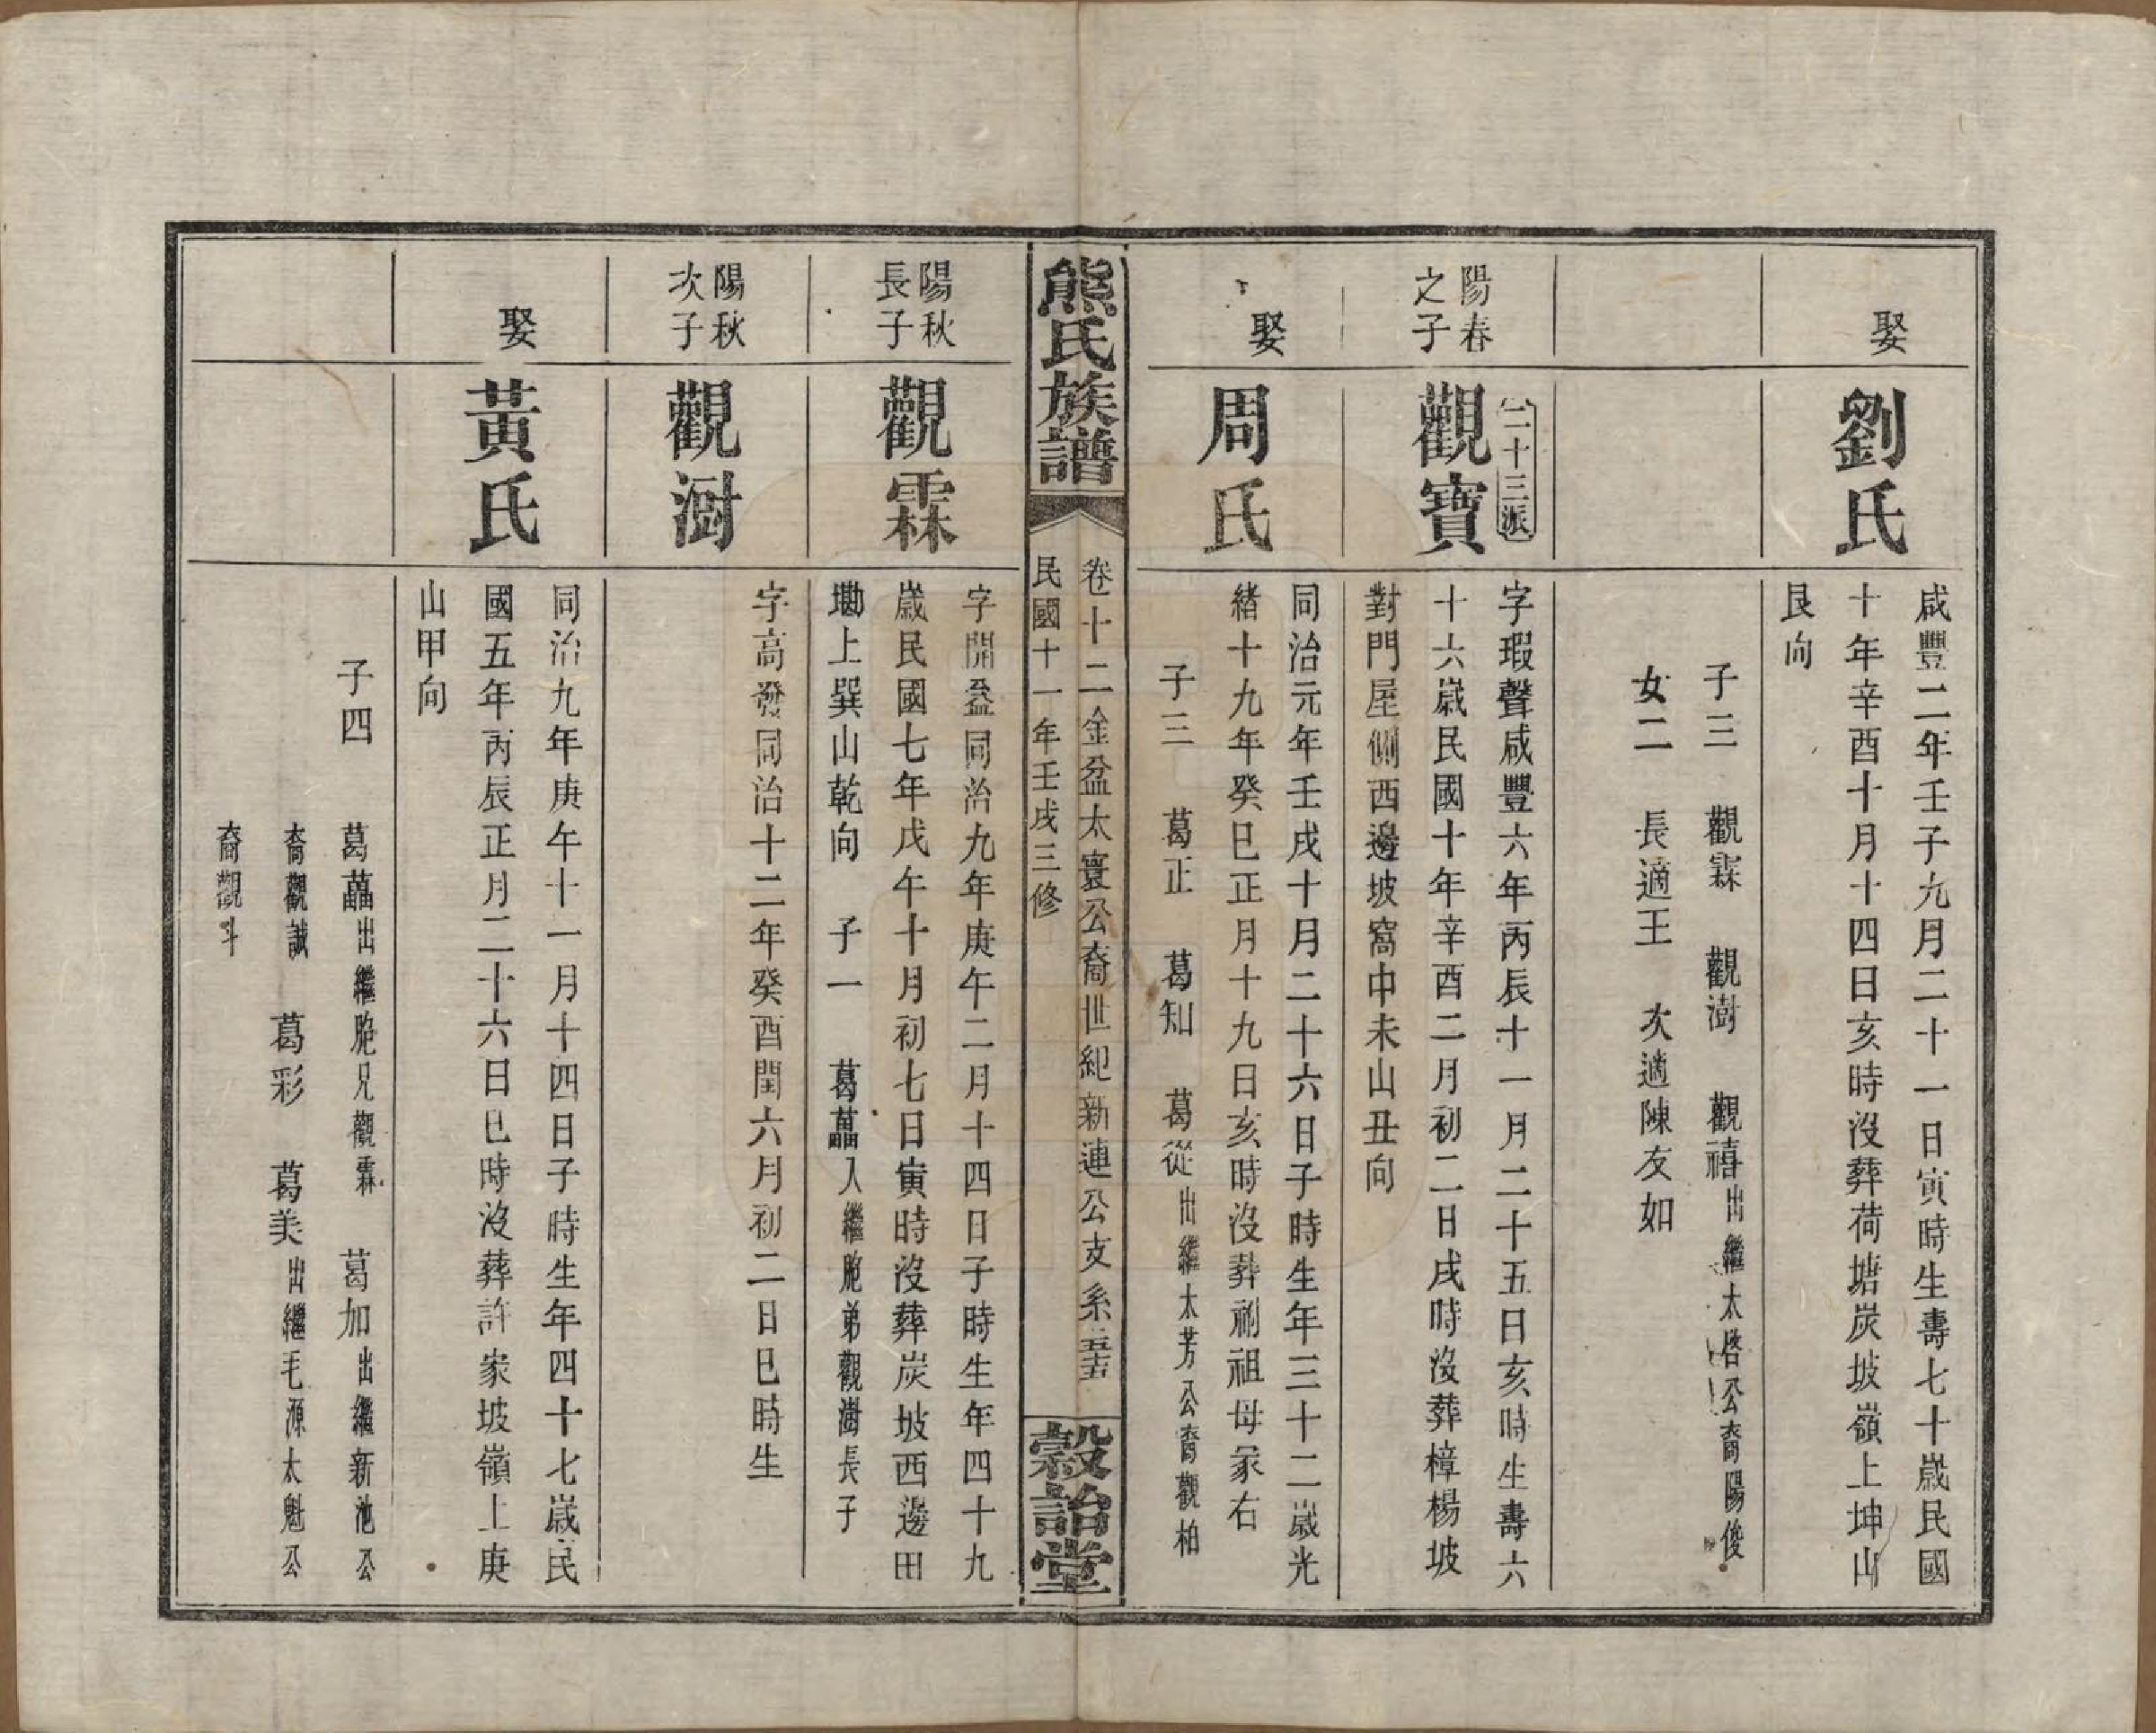 娶
劉氏
咸豐二年壬子九月二十一日寅時生壽七十歲民國
十年辛酉十月十四日亥時沒葬荷塘炭坡嶺上坤山
艮向
子三 觀霖 觀澍 觀禧出繼太啓公裔陽俊
女二 長適王 次適陳友如
陽春
之子
二十三派
觀寶
字瑕聲咸豐六年丙辰十一月二十五日亥時生壽六
十六歲民國十年辛酉二月初二日戌時沒葬樟楊坡
對門屋側西邊坡窩中未山丑向
娶
周氏
同治元年壬戌十月二十六日子時生年三十二歲光
緒十九年癸巳正月十九日亥時沒葬祔祖母冢右
子三 葛正 葛知 葛從出繼太芳公裔觀柏
熊氏族譜
卷十二金盆太寰公裔世紀新連公支系
民國十一年壬戌三修
穀詒堂
陽秋
長子
觀霖
字開益同治九年庚午二月十四日子時生年四十九
歲民國七年戊午十月初七日寅時沒葬炭坡西邊田
墈上巽山乾向 子一 葛藟入繼胞弟觀澍長子
陽秋
次子
觀澍
字高發同治十二年癸酉閏六月初二日巳時生
娶
黃氏
同治九年庚午十一月十四日子時生年四十七歲民
國五年丙辰正月二十六日巳時沒葬許家坡嶺上庚
山甲向
子四 葛藟出繼胞兄觀霖 葛加出繼新池公
裔觀誠 葛彩 葛美出繼毛源太魁公
裔觀斗